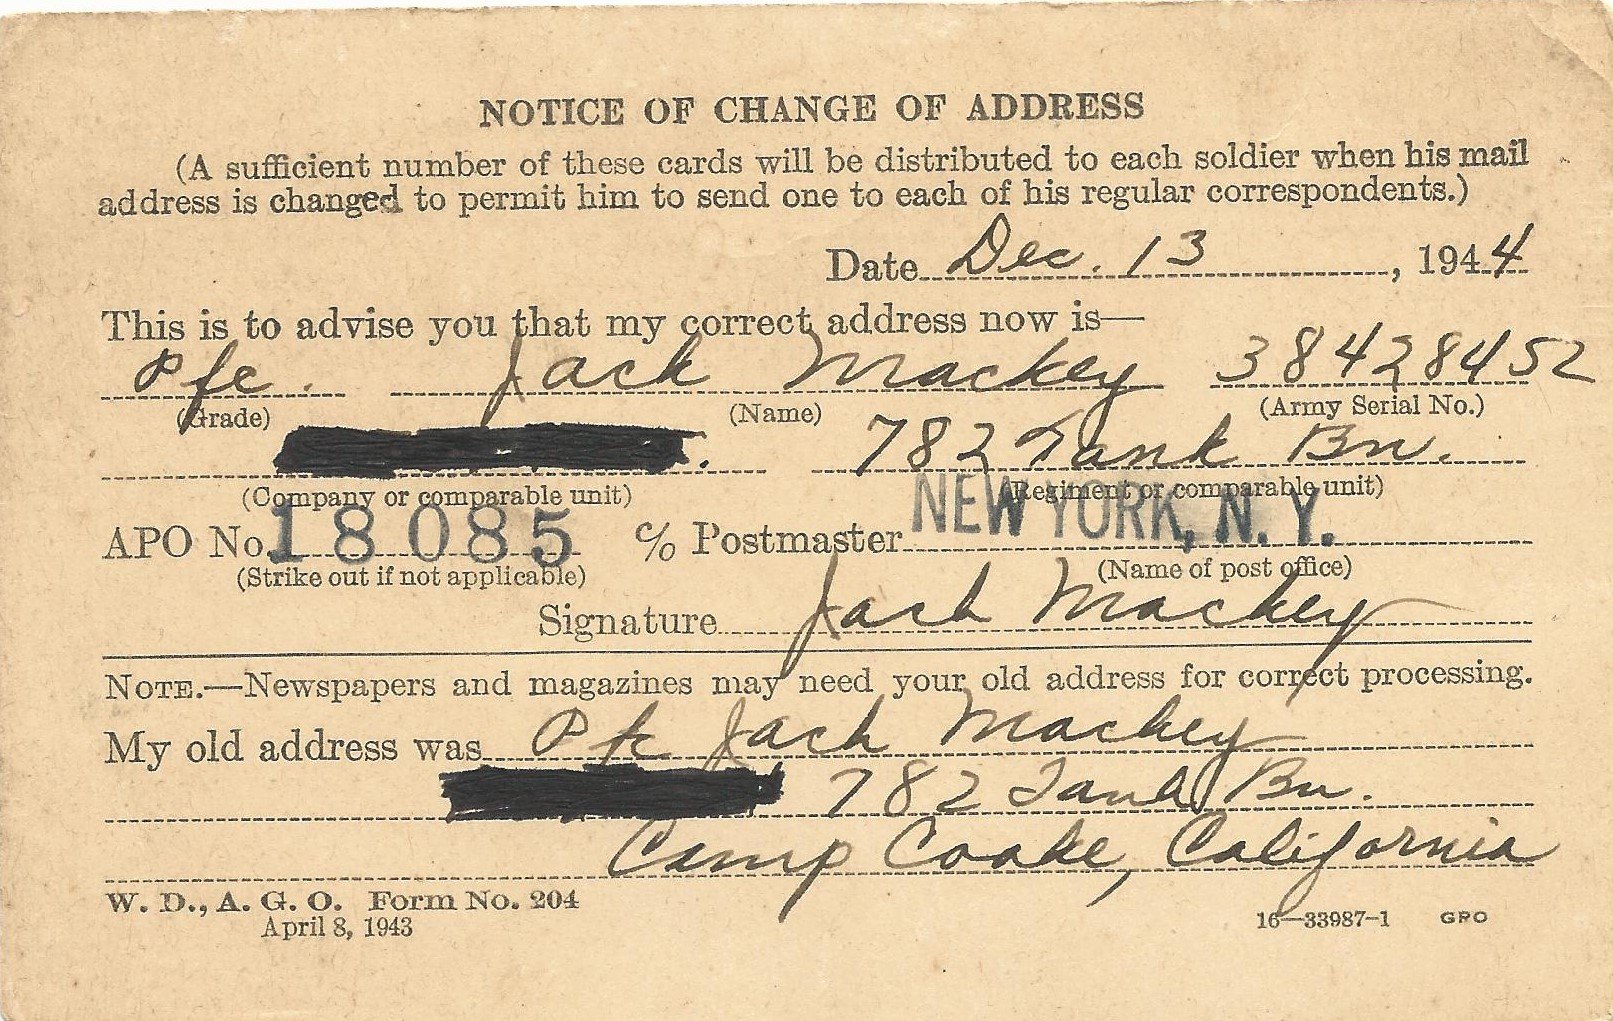 NOTICE OF CHANGE OF ADDRESS
(A sufficient number of these cards will be distributed to each soldier when his mail
address is changed to permit him to send one to each of his regular correspondents.)
Date Dec. 13, 1944
This is to advise you that my correct address now is—
Pfc. Jack Mackey 38428452
(Grade) (Name) (Army Serial No.)
782 Tank Bn.
(Company or comparable unit) (Regiment or comparable unit)
APO No. 18085 c/o Postmaster NEW YORK, N. Y.
(Strike out if not applicable) (Name of post office)
Signature Jack Mackey
NOTE.—Newspapers and magazines may need your old address for correct processing.
My old address was Pfc Jack Mackey
782 Tank Bn.
Camp Cooke, California
W. D., A. G. O. Form No. 204
April 8, 1943 16—33987-1 GPO